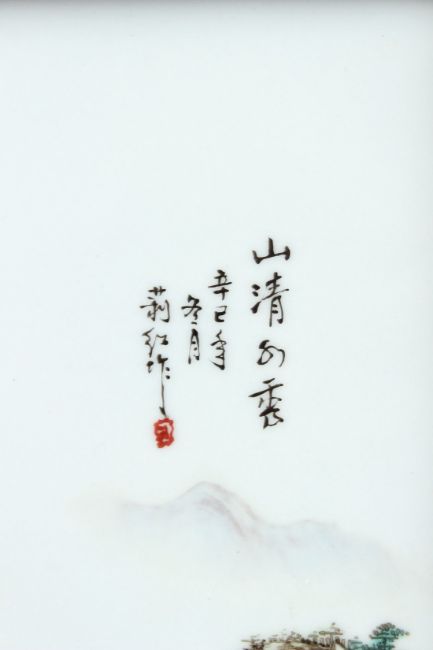 山清水秀
辛巳年
冬月
莉红作